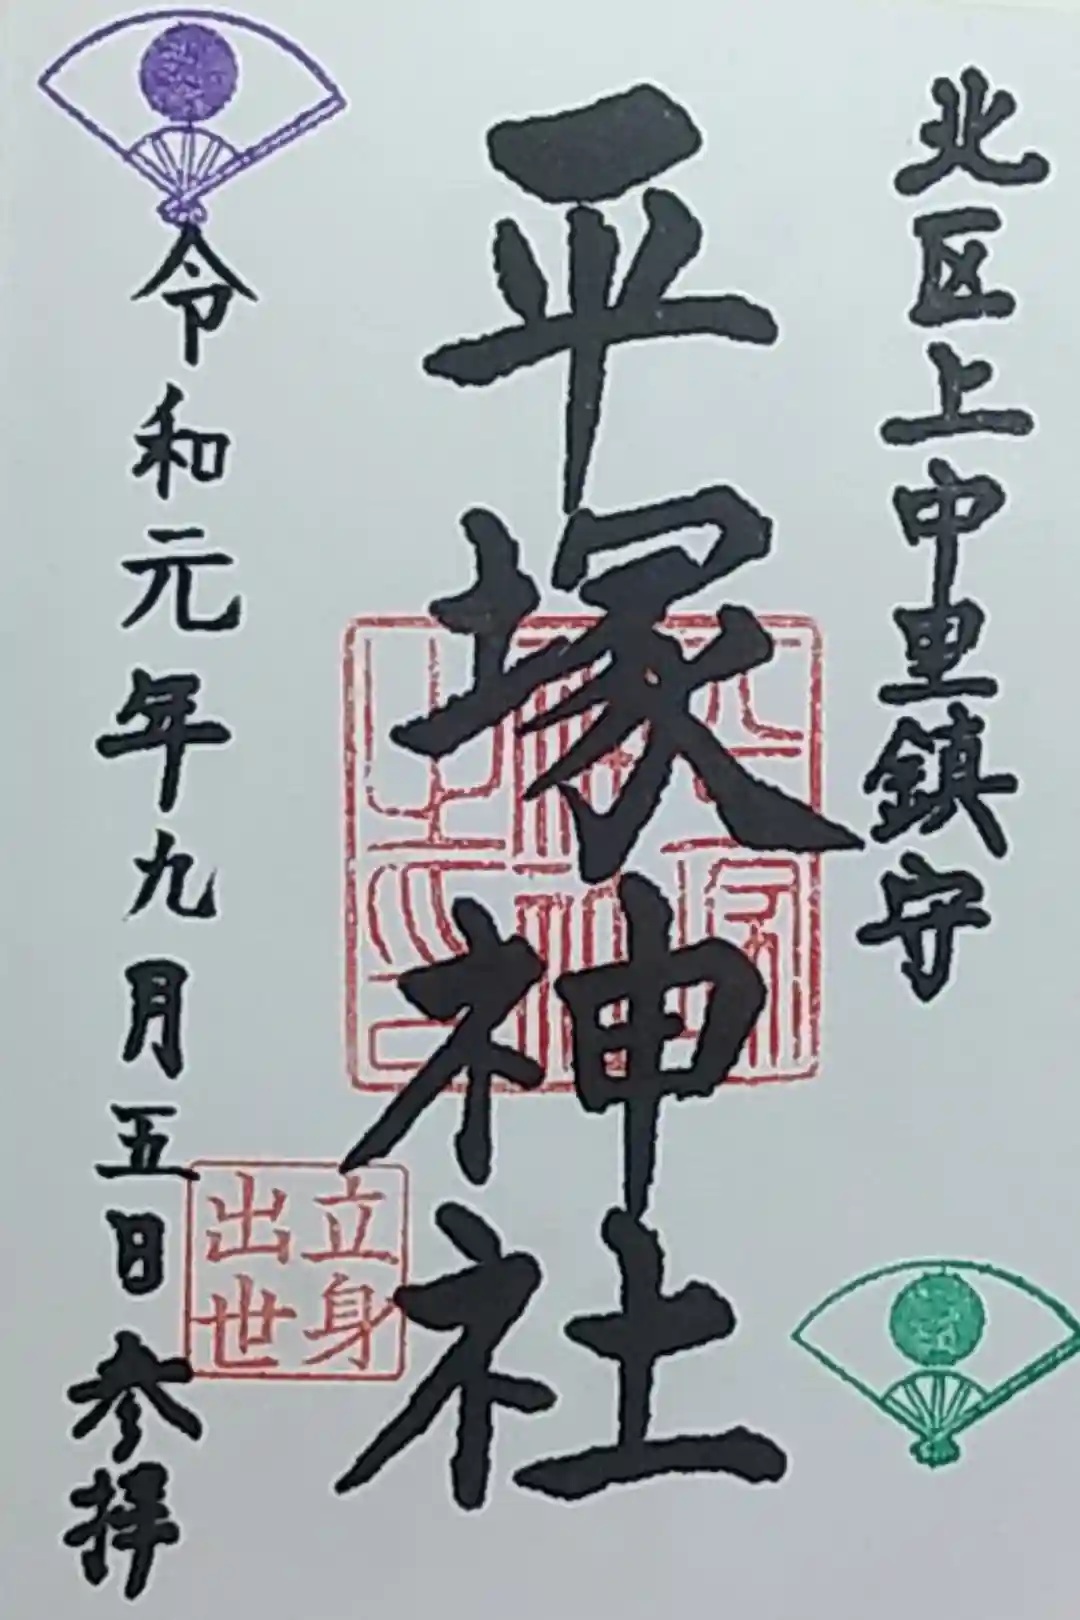 北区上中里鎮守
平塚神社
平塚神社之印
立身
出世
令和元年九月五日参拝